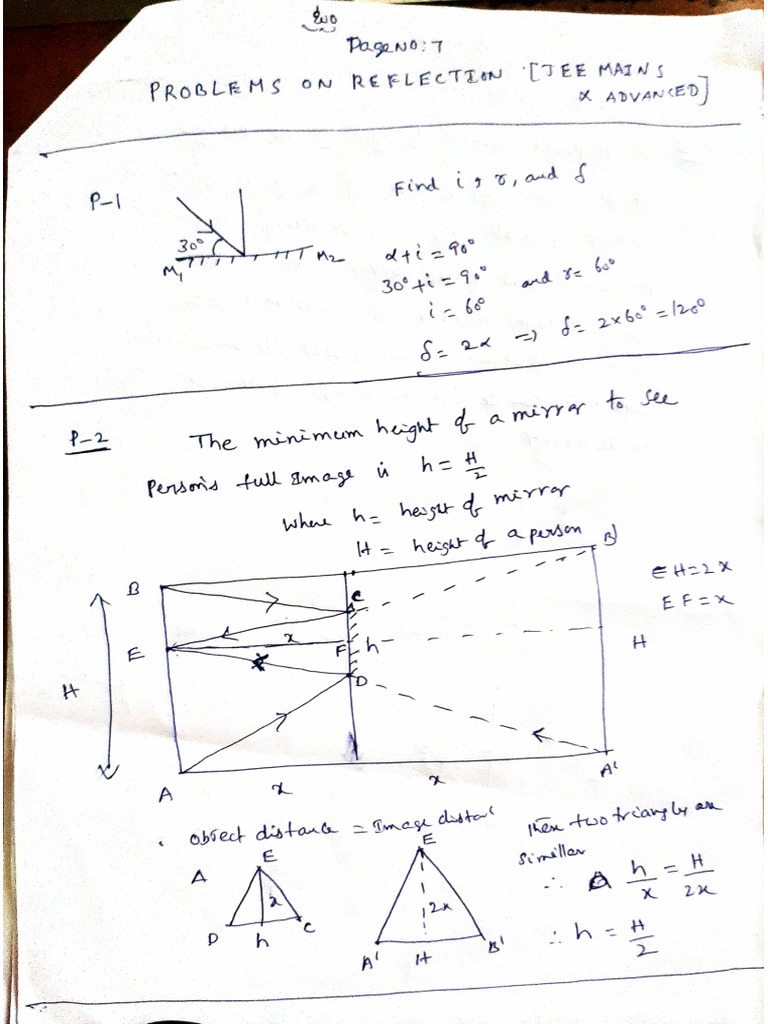 Page NO: 7
PROBLEMS ON REFLECTION [JEE MAINS
& ADVANCED]
P-1
Find i, r, and δ
30°
M1
M2
α+i = 90°
30°+i = 90° and r = 60°
i = 60°
δ = 2α ⇒ δ = 2×60° = 120°
P-2 The minimum height of a mirror to see
Person's full Image is h = H/2
where h = height of mirror
H = height of a person
B
C
B'
EH = 2x
EF = x
E
x
F
h
H
H
D
A
x
x
A'
Object distance = Image distan
Then two triangles are
similler
A
E
x
D
h
C
E
2x
A'
H
B'
∴ h/x = H/2x
∴ h = H/2